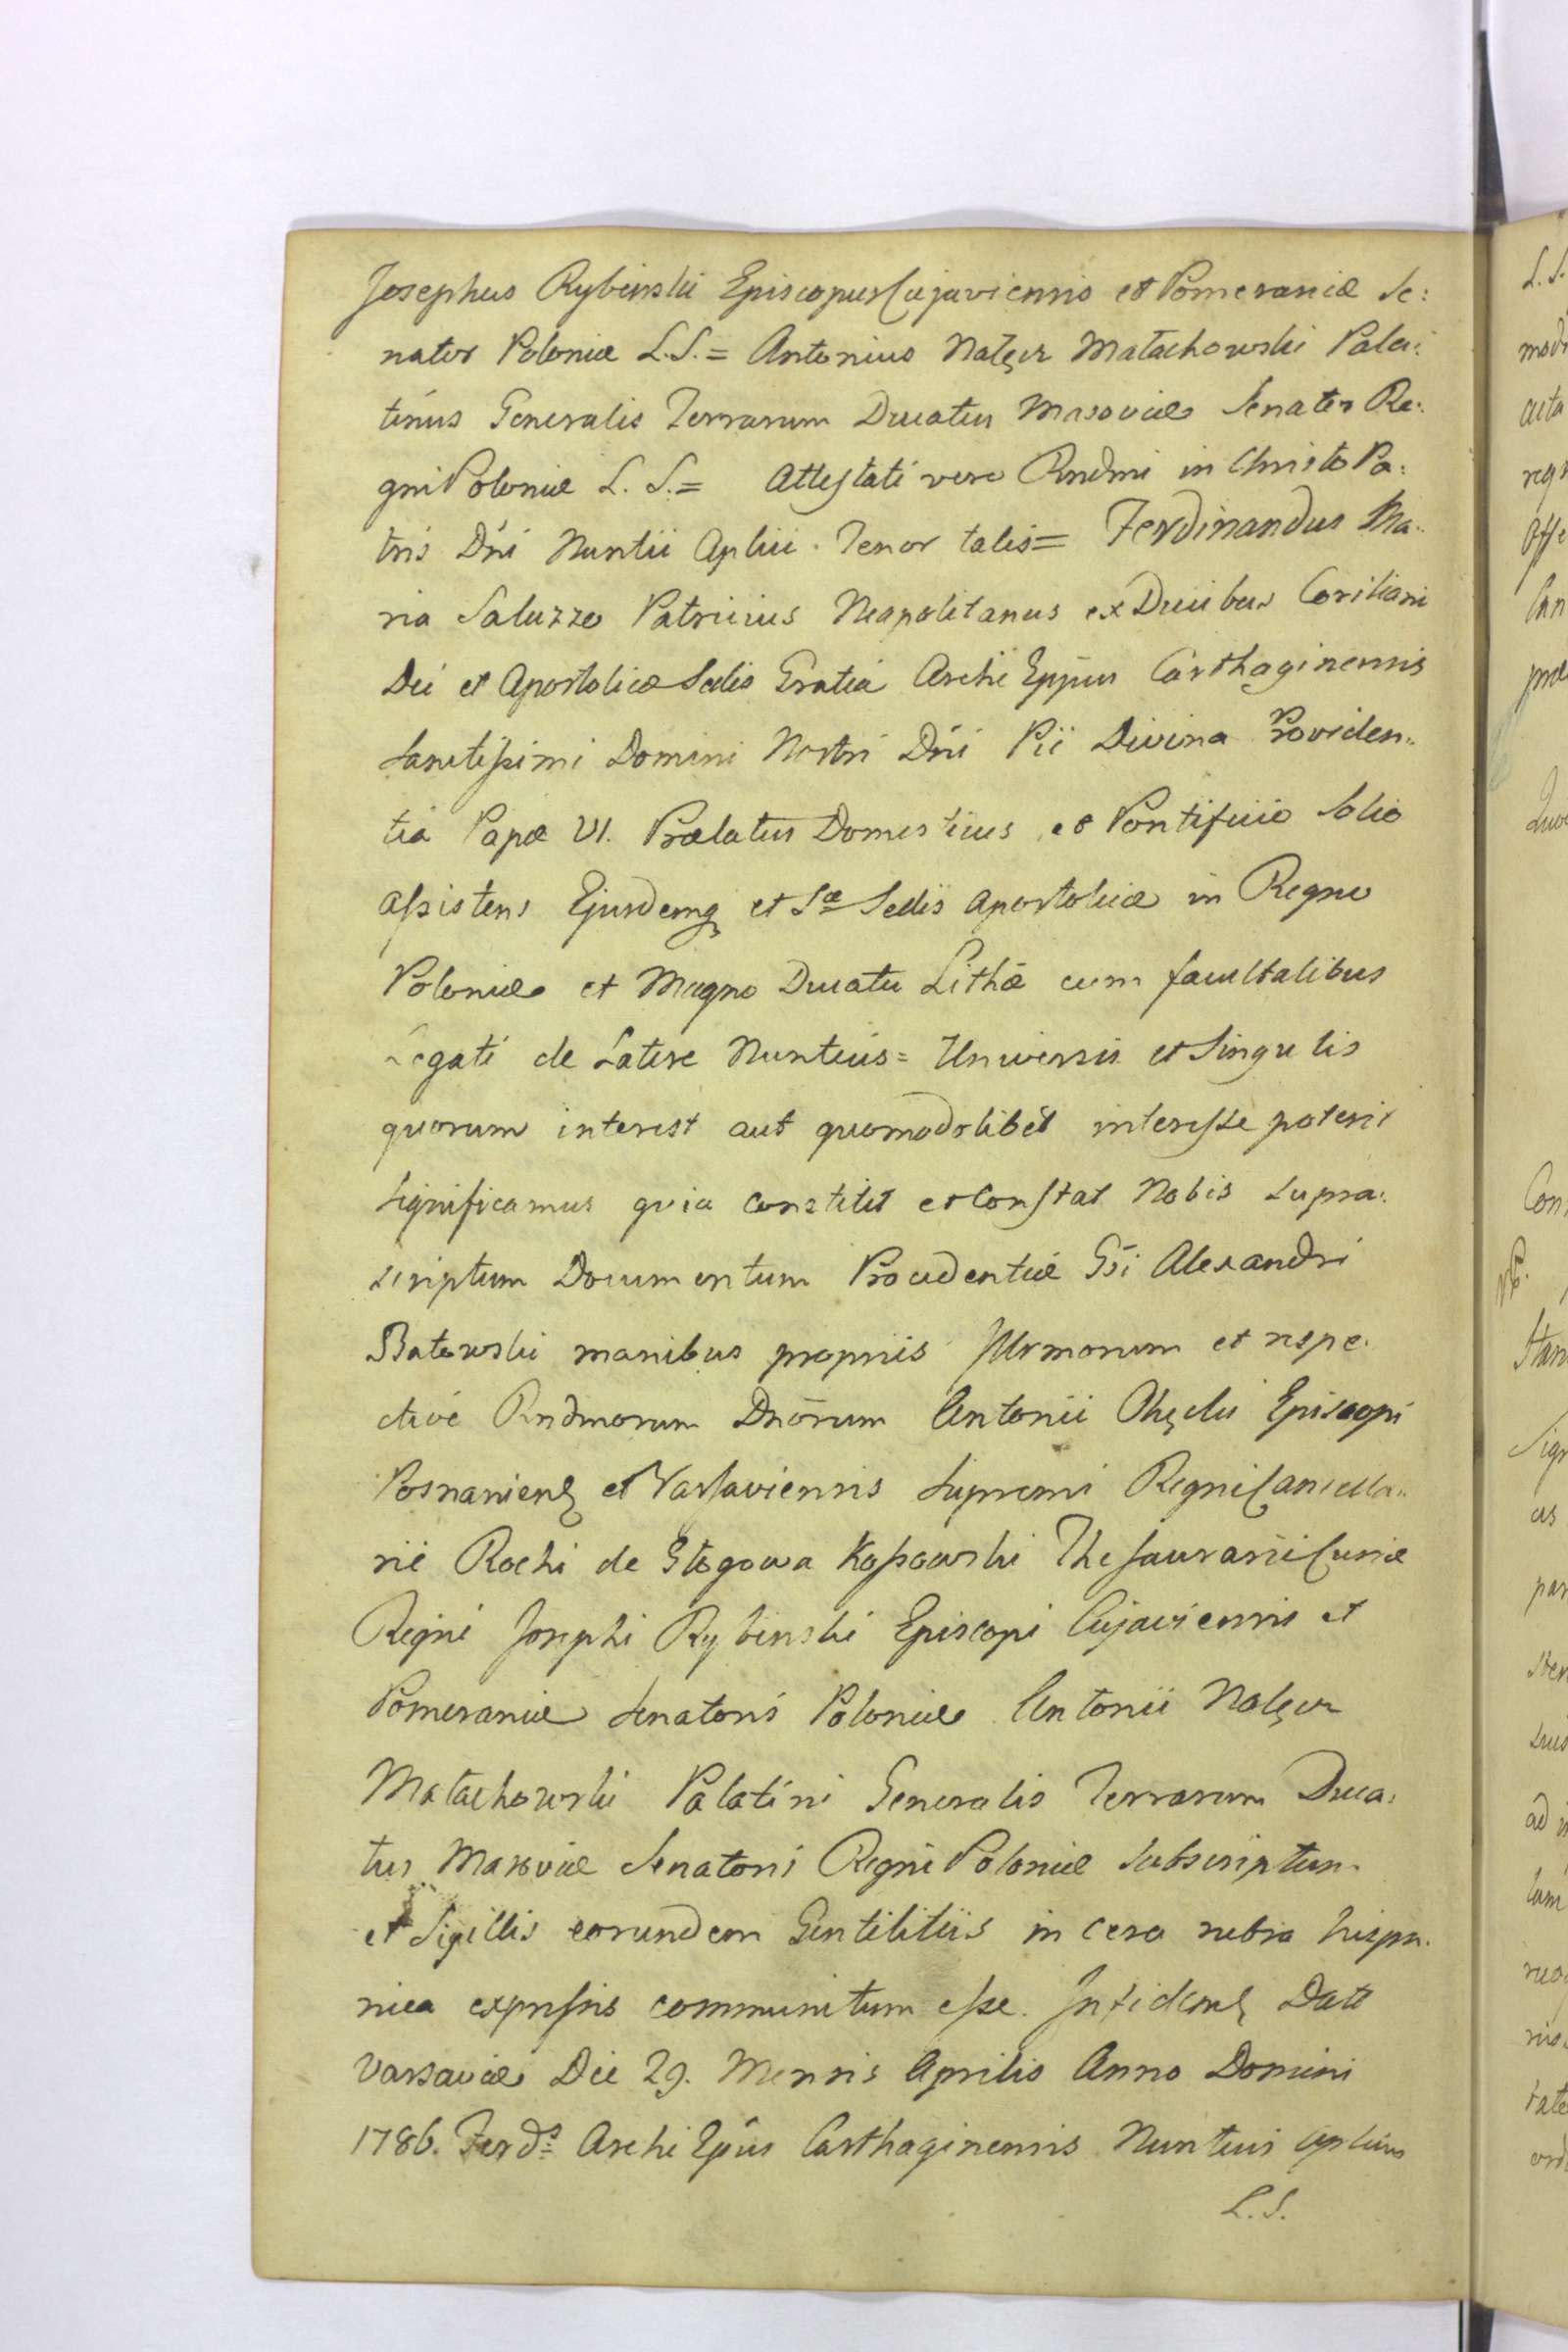 Josephus Rybinski Episcopus Cujaviensis et Pomeraniæ Se:
nator Poloniæ L.S. = Antonius Nałęcz Małachowski Pala:
tinus Generalis Terrarum Ducatus Masoviæ Senator Re:
gni Poloniæ L. S. = Attestati vero Rndmi in Christo Pa:
tris Dni Nuntii Aplici. Tenor talis = Ferdinandus Ma:
ria Saluzzo Patricius Neapolitanus ex Ducibus Coriliani
Dei et Apostolicæ Sedis Gratia Archi Eppus Carthaginensis
Sanctissimi Domini Nostri Dni Pii Divina Providen:
tia Papæ VI. Prælatus Domesticus et Pontificio Solio
assistens Ejusdemq et Sæ Sedis Apostolicæ in Regno
Poloniæ et Magno Ducatu Lithæ cum facultatibus
Legati de Latere Nuntius = Universis et Singulis
quorum interest aut quomodolibet interesse poterit
significamus quia constitit et constat Nobis supra:
scriptum Documentum Procedentiæ Gsi Alexandri
Batowski manibus propriis Illrmorum et respe:
ctive Rndmorum Dnorum Antonii Okęcki Episcopi
Posnaniens et Varsaviensis Supremi Regni Cancella:
rii Rochi de Głogowa Kossowski Thesaurarii Curiæ
Regni Josephi Rybinski Episcopi Cujaviensis et
Pomeraniæ Senatoris Poloniæ Antonii Nałęcz
Małachowski Palatini Generalis Terrarum Duca:
tus Masoviæ Senatoris Regni Poloniæ Subscriptum
et Sigillis eorundem Gentilitiis in cera rubra hispa:
nica expressis communitum esse. In fidem Datt
Varsaviæ Die 29. Mensis Aprilis Anno Domini
1786. Ferds Archi Epus Carthaginensis Nuntius aplicus
L.S.